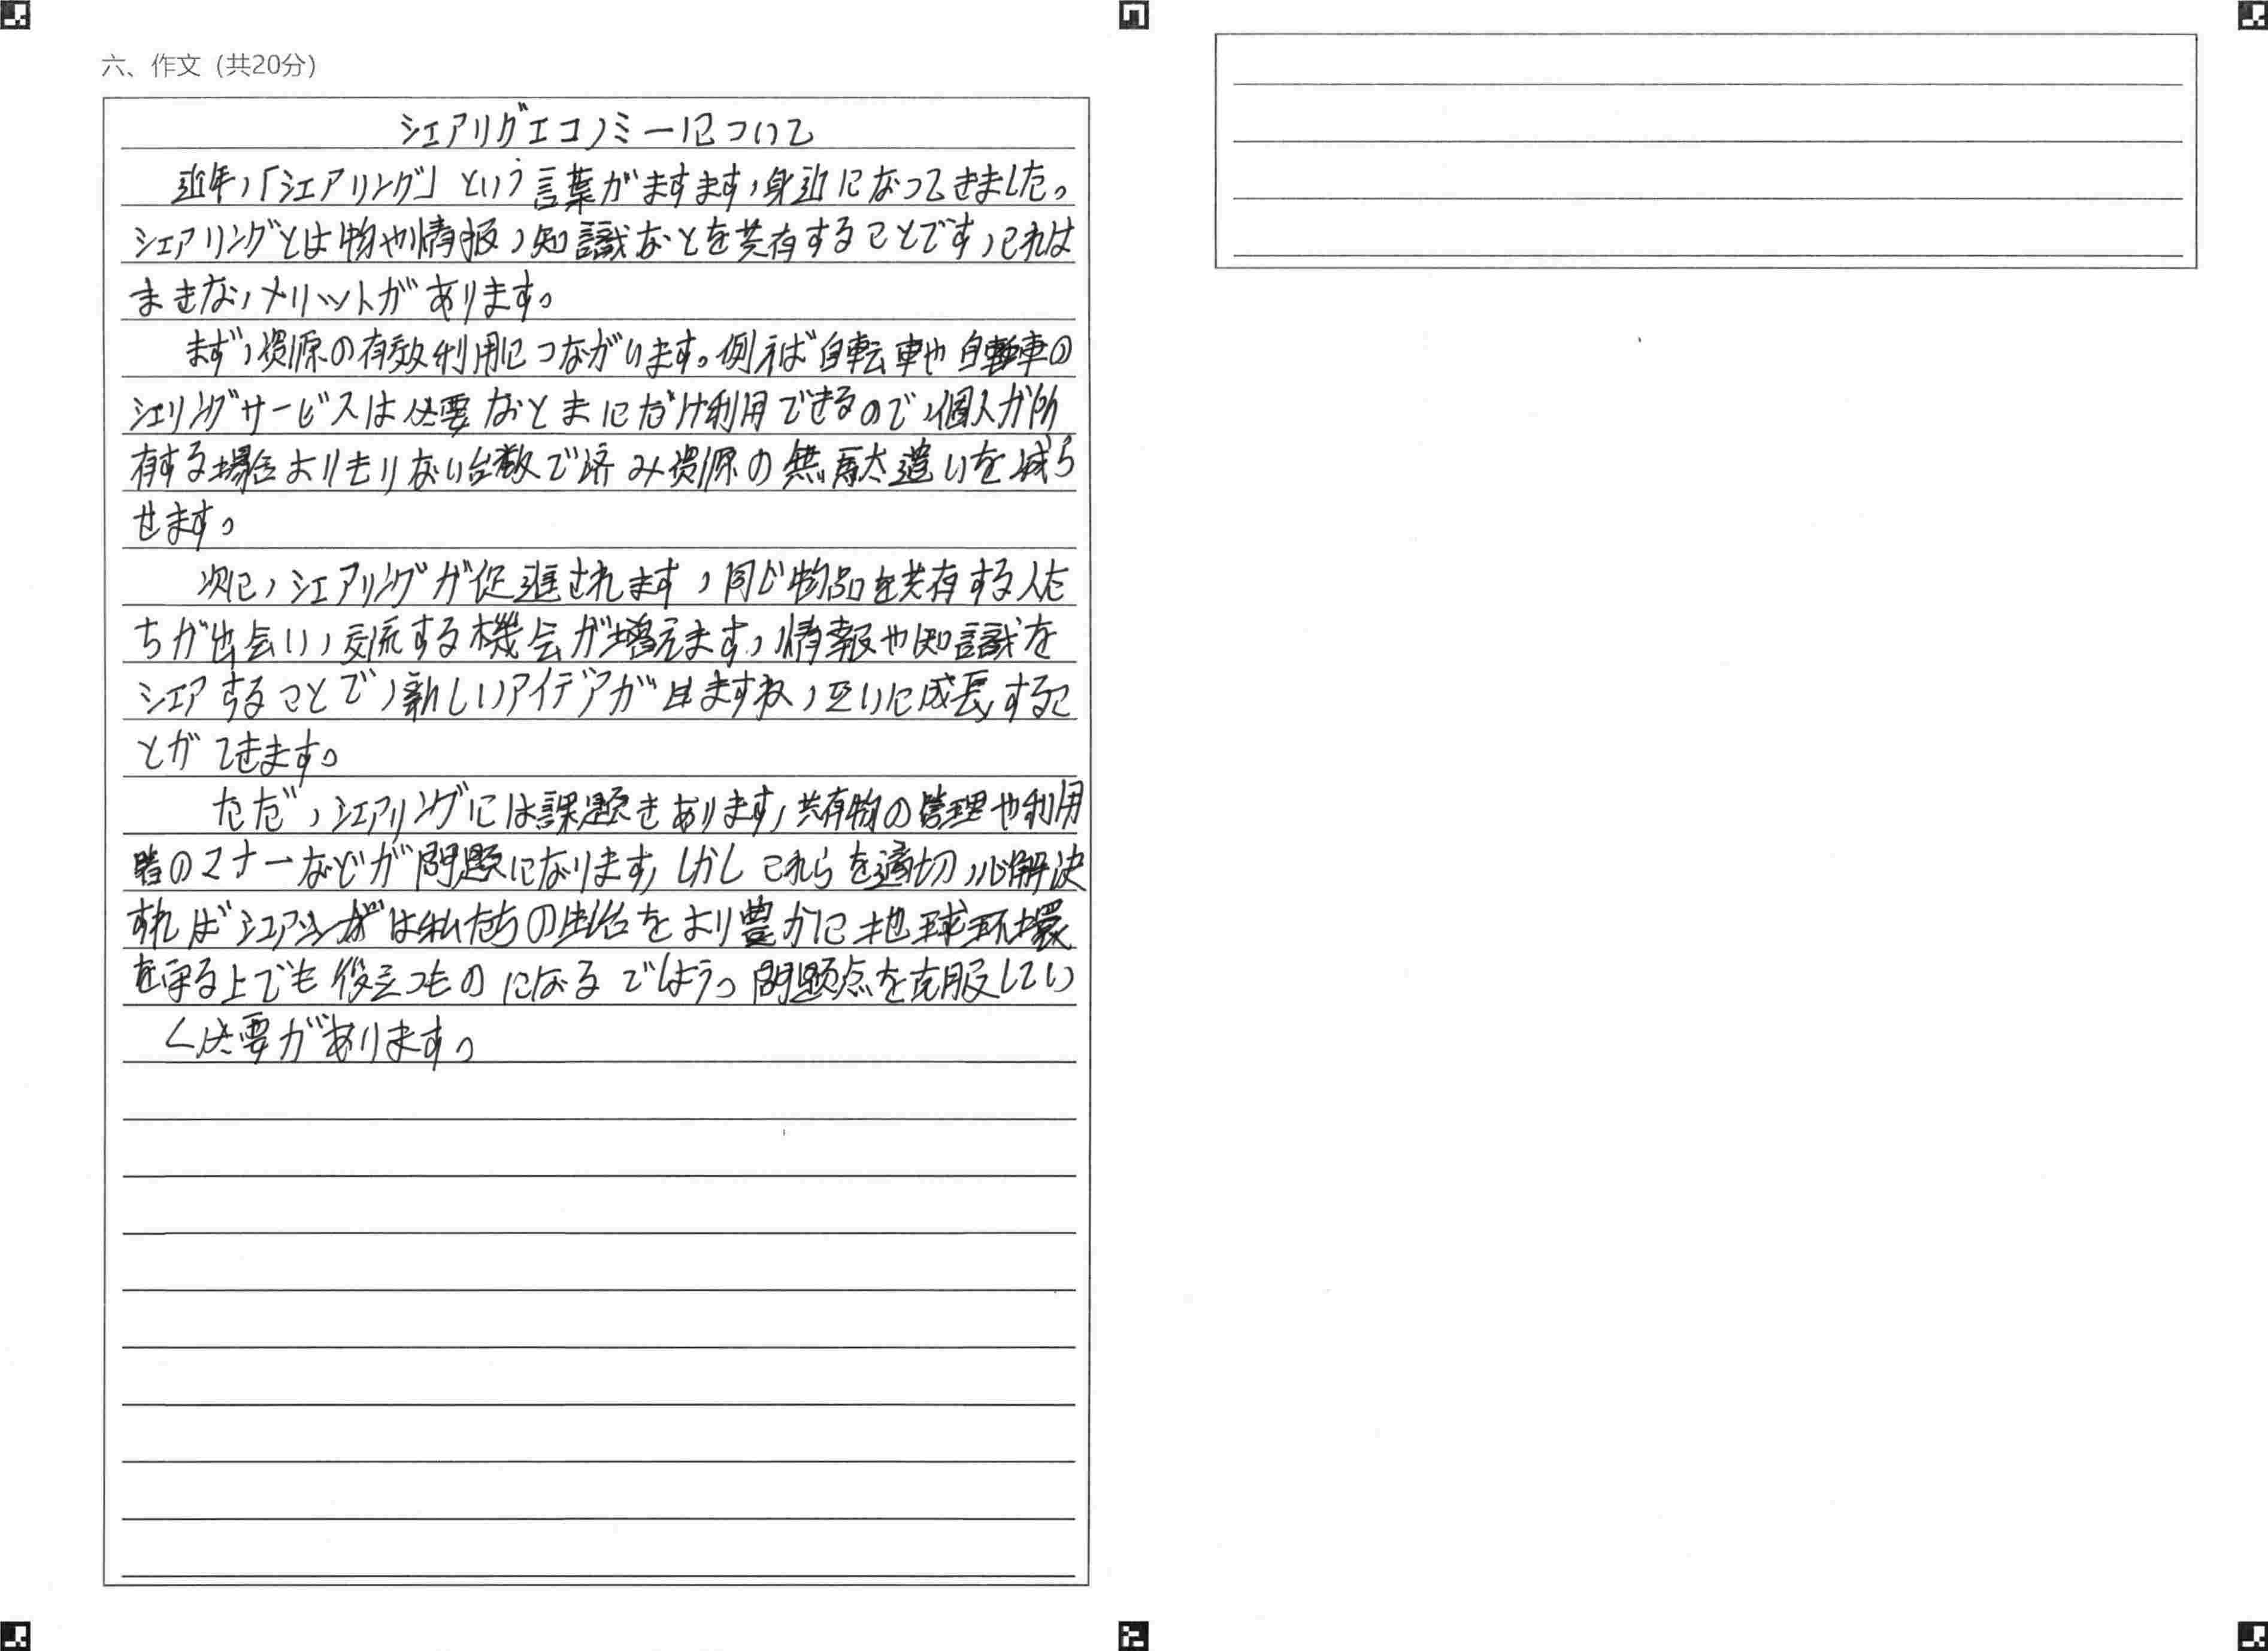 六、作文（共20分）
シェアリグエコノミーについて
近年、「シェアリング」という言葉がますます、身近になってきました。
シェアリングとは物や情报、知識なとを共有することです、これは
まきな、メリットがあります。
まず、資源の有效利用につながいます。例えば自転車や自転車の
シェリングサービスは必要なとまにだけ利用できるので、個人が所
有する場合よりもりない台数で済み資源の無駄遣いを減ら
せます。
次に、シェアリングが促進されます、同じ物品を共存する人た
ちが出会い、交流する機会が増えます、情報や知識を
シェアすることで、新しいアイデアが出ますね、互いに成長するこ
とがてきます。
ただ、シェアリングには課題きあります、共有物の管理や利用
時のマナーなどが問題になります、しかしこれらを適切に解決
すればシェアリングは私たちの生治をより豊かに地球环環
を守る上でも役立つものになるでしょう。問題点を克服してい
く必要があります。